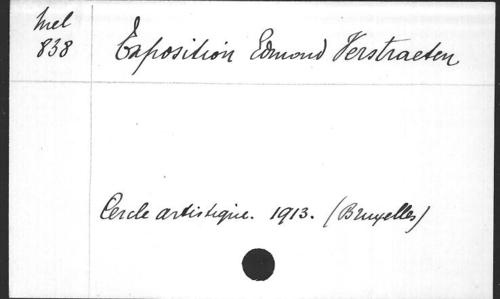 Mel
838
Exposition Edmond Verstraeten
Cercle artistique. 1913. (Bruxelles)